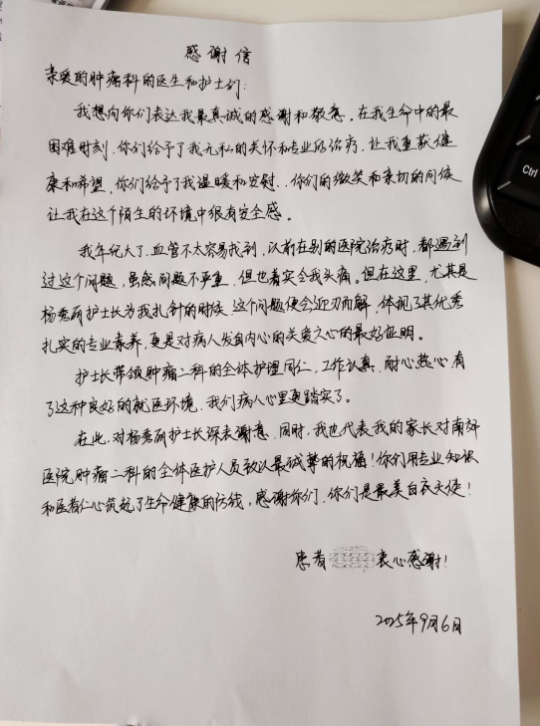 感谢信
亲爱的肿瘤科的医生和护士们:
我想向你们表达我最真诚的感谢和敬意。在我生命中的最
困难时刻,你们给予了我无私的关怀和专业的治疗,让我重获健
康和希望,你们给予了我温暖和安慰,,你们的微笑和亲切的问候
让我在这个陌生的环境中很有安全感。
我年纪大了,血管不太容易找到,以前在别的医院治疗时,都遇到
过这个问题,虽然问题不严重,但也着实令我头痛。但在这里,尤其是
杨秀丽护士长为我扎针的时候,这个问题便会迎刃而解,体现了其优秀
扎实的专业素养,更是对病人发自内心的关爱之心的最好证明。
护士长带领肿瘤二科的全体护理同仁,工作认真,耐心热心,有
了这种良好的就医环境,我们病人心里更踏实了。
在此,对杨秀丽护士长深表谢意,同时,我也代表我的家长对南郊
医院肿瘤二科的全体医护人员致以最诚挚的祝福!你们用专业知识
和医者仁心筑起了生命健康的防线,感谢你们,你们是最美白衣天使!
患者 衷心感谢!
2025年9月6日
Ctrl